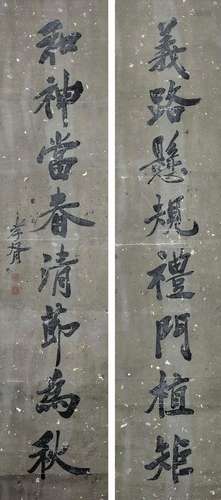 義路懸規禮門植矩
和神當春清節為秋
孝胥